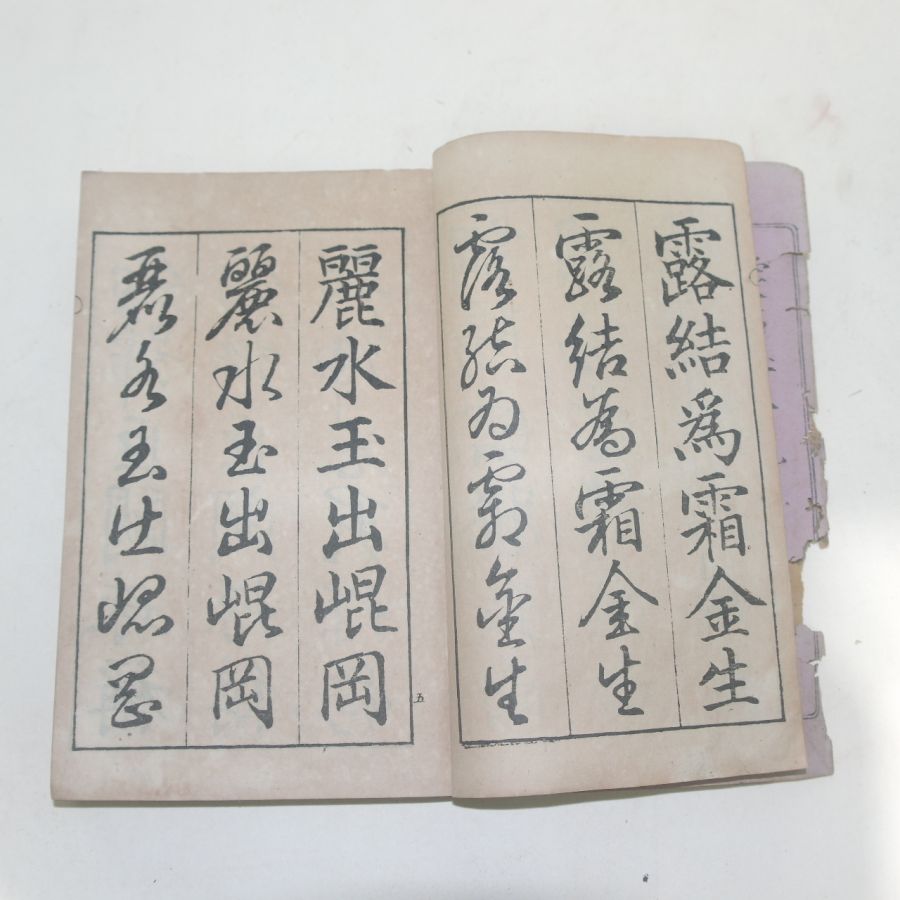 露結爲霜金生
露結為霜金生
露結為霜金生
麗水玉出崐岡
麗水玉出崐岡
麗水玉出崐岡
五